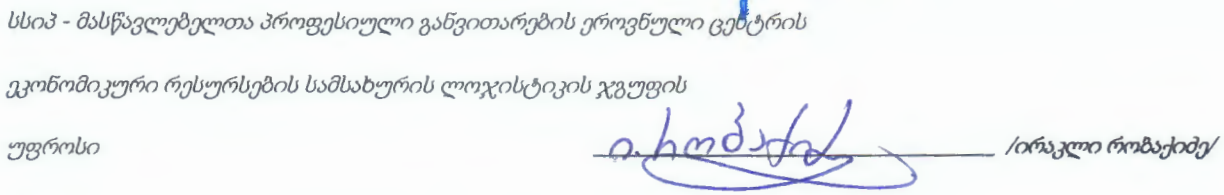 სსიპ - მასწავლებელთა პროფესიული განვითარების ეროვნული ცენტრის
ეკონომიკური რესურსების სამსახურის ლოჯისტიკის ჯგუფის
უფროსი ი. რობაქიძე /ირაკლი რობაქიძე/